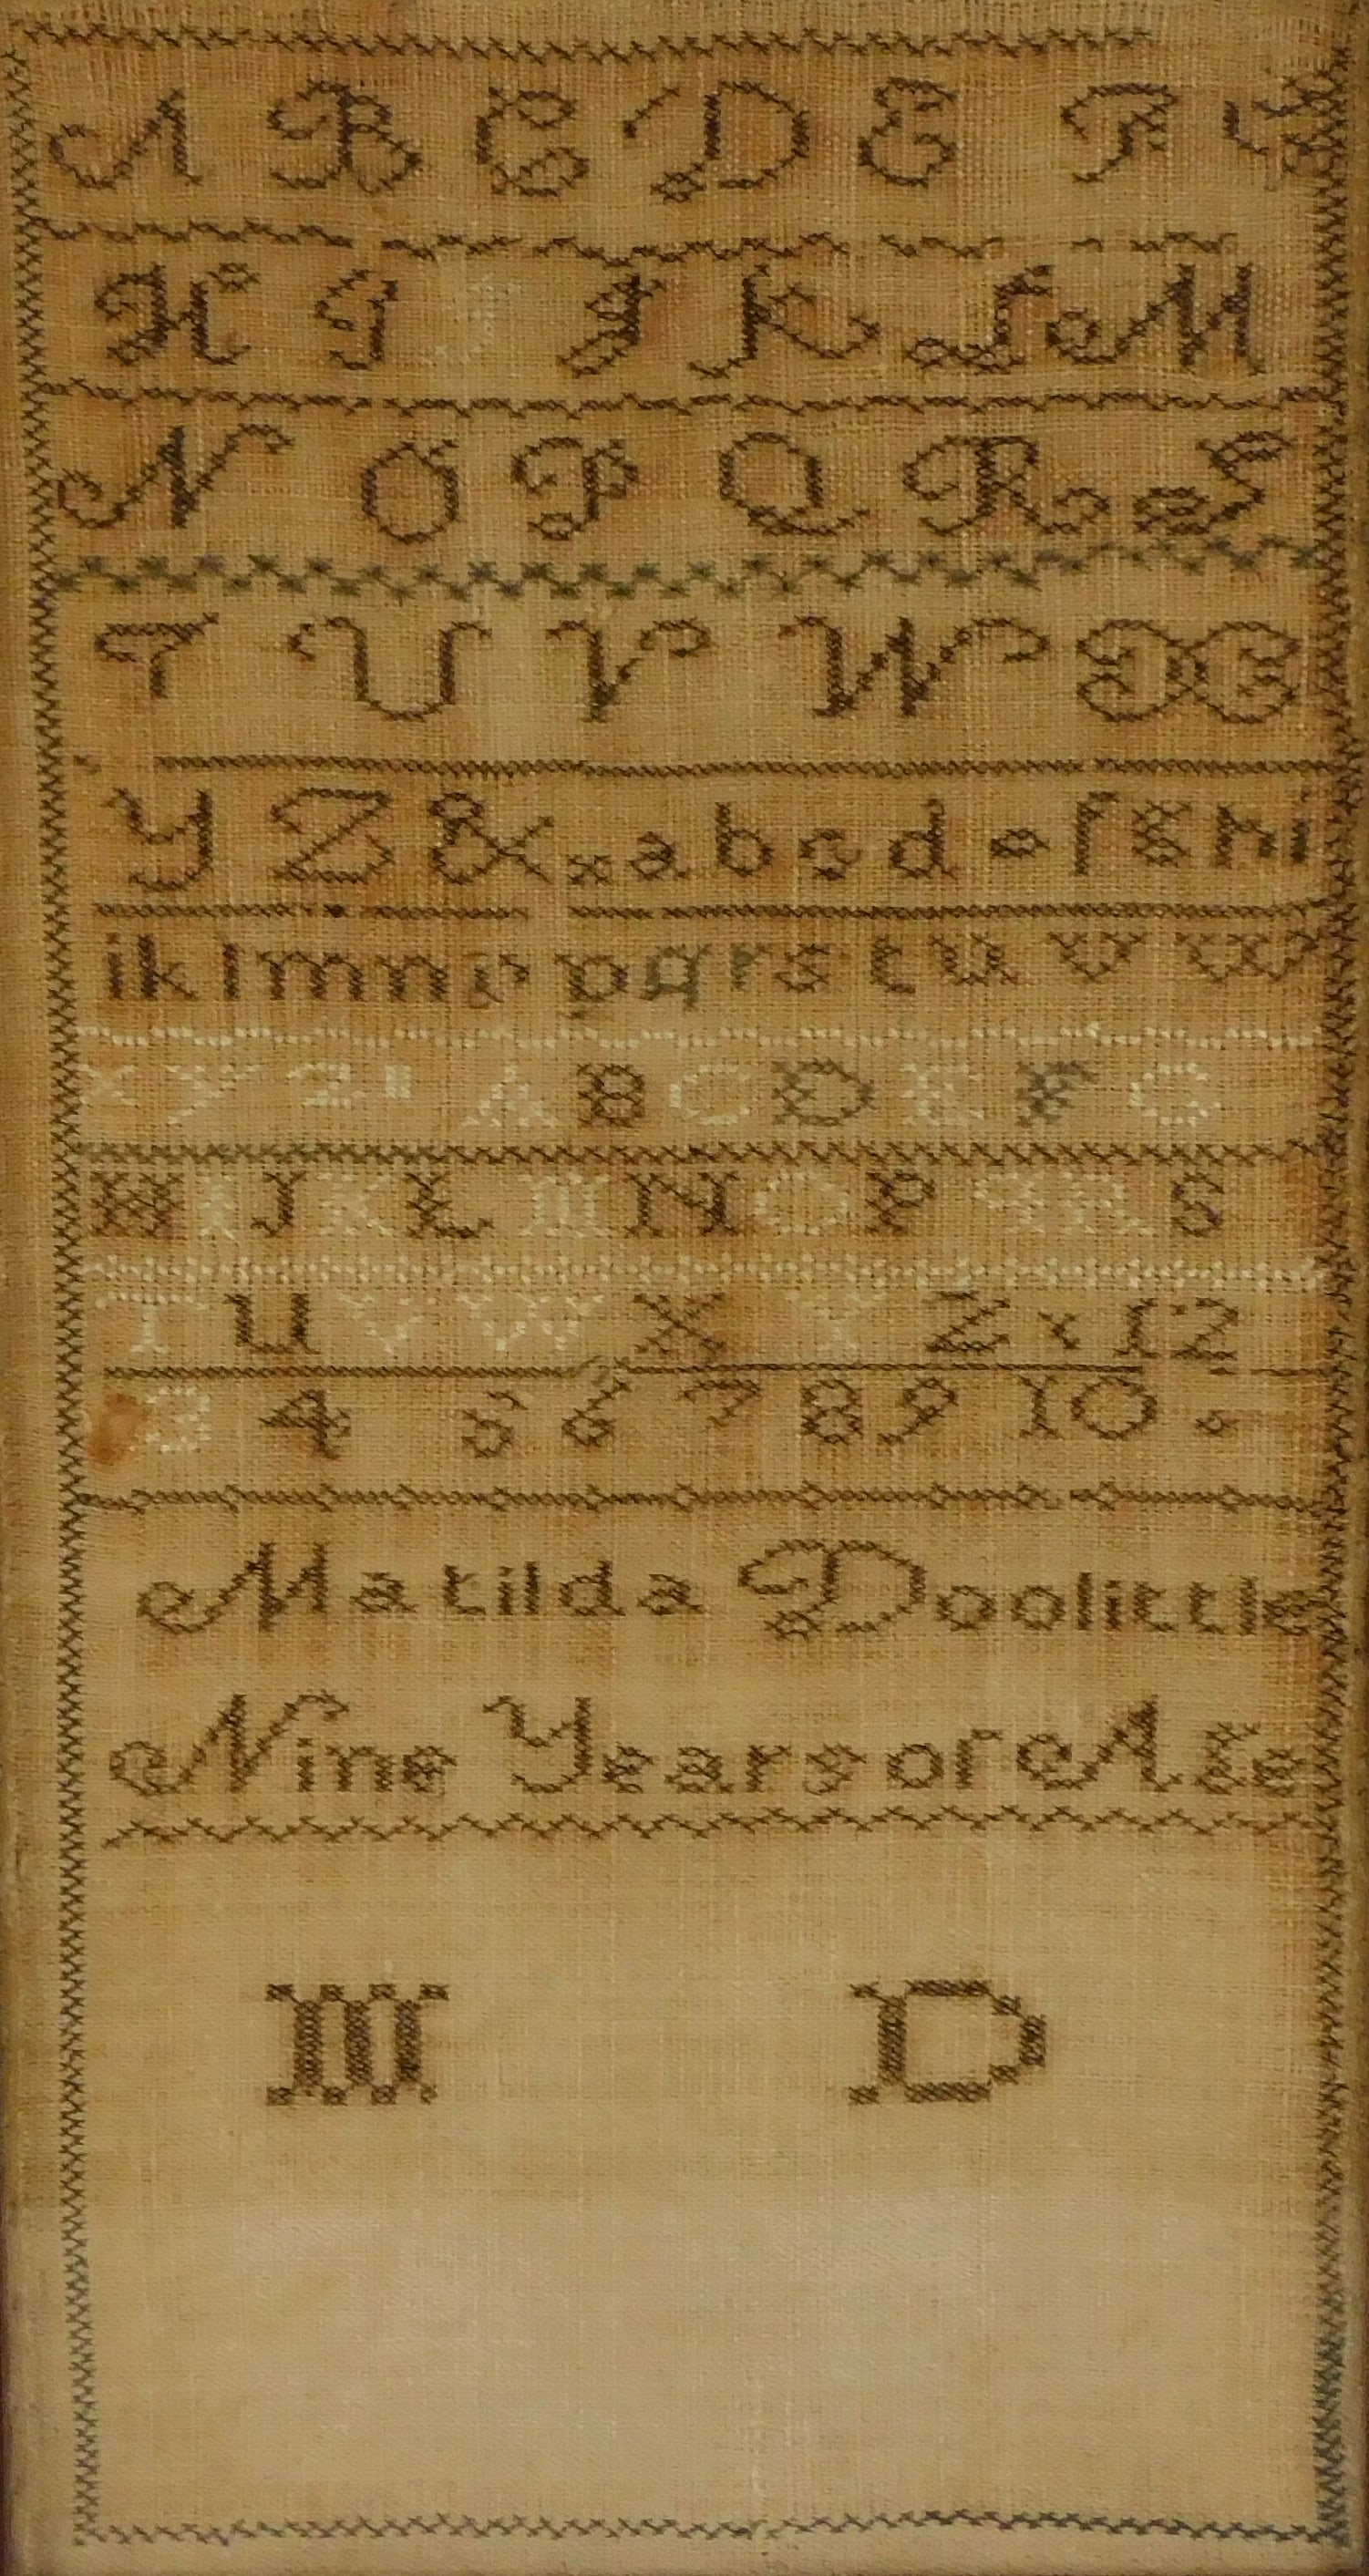 A B C D E F G
H I J K L M
N O P Q R S
T U V W X
Y Z & x a b c d e f g h i
i k l m n o p q r s t u v w
x y z A B C D E F G
H I J K L M N O P Q R S
T U V W X Y Z 1 2
3 4 5 6 7 8 9 10
Matilda Doolittle
Nine Years of Age
M D